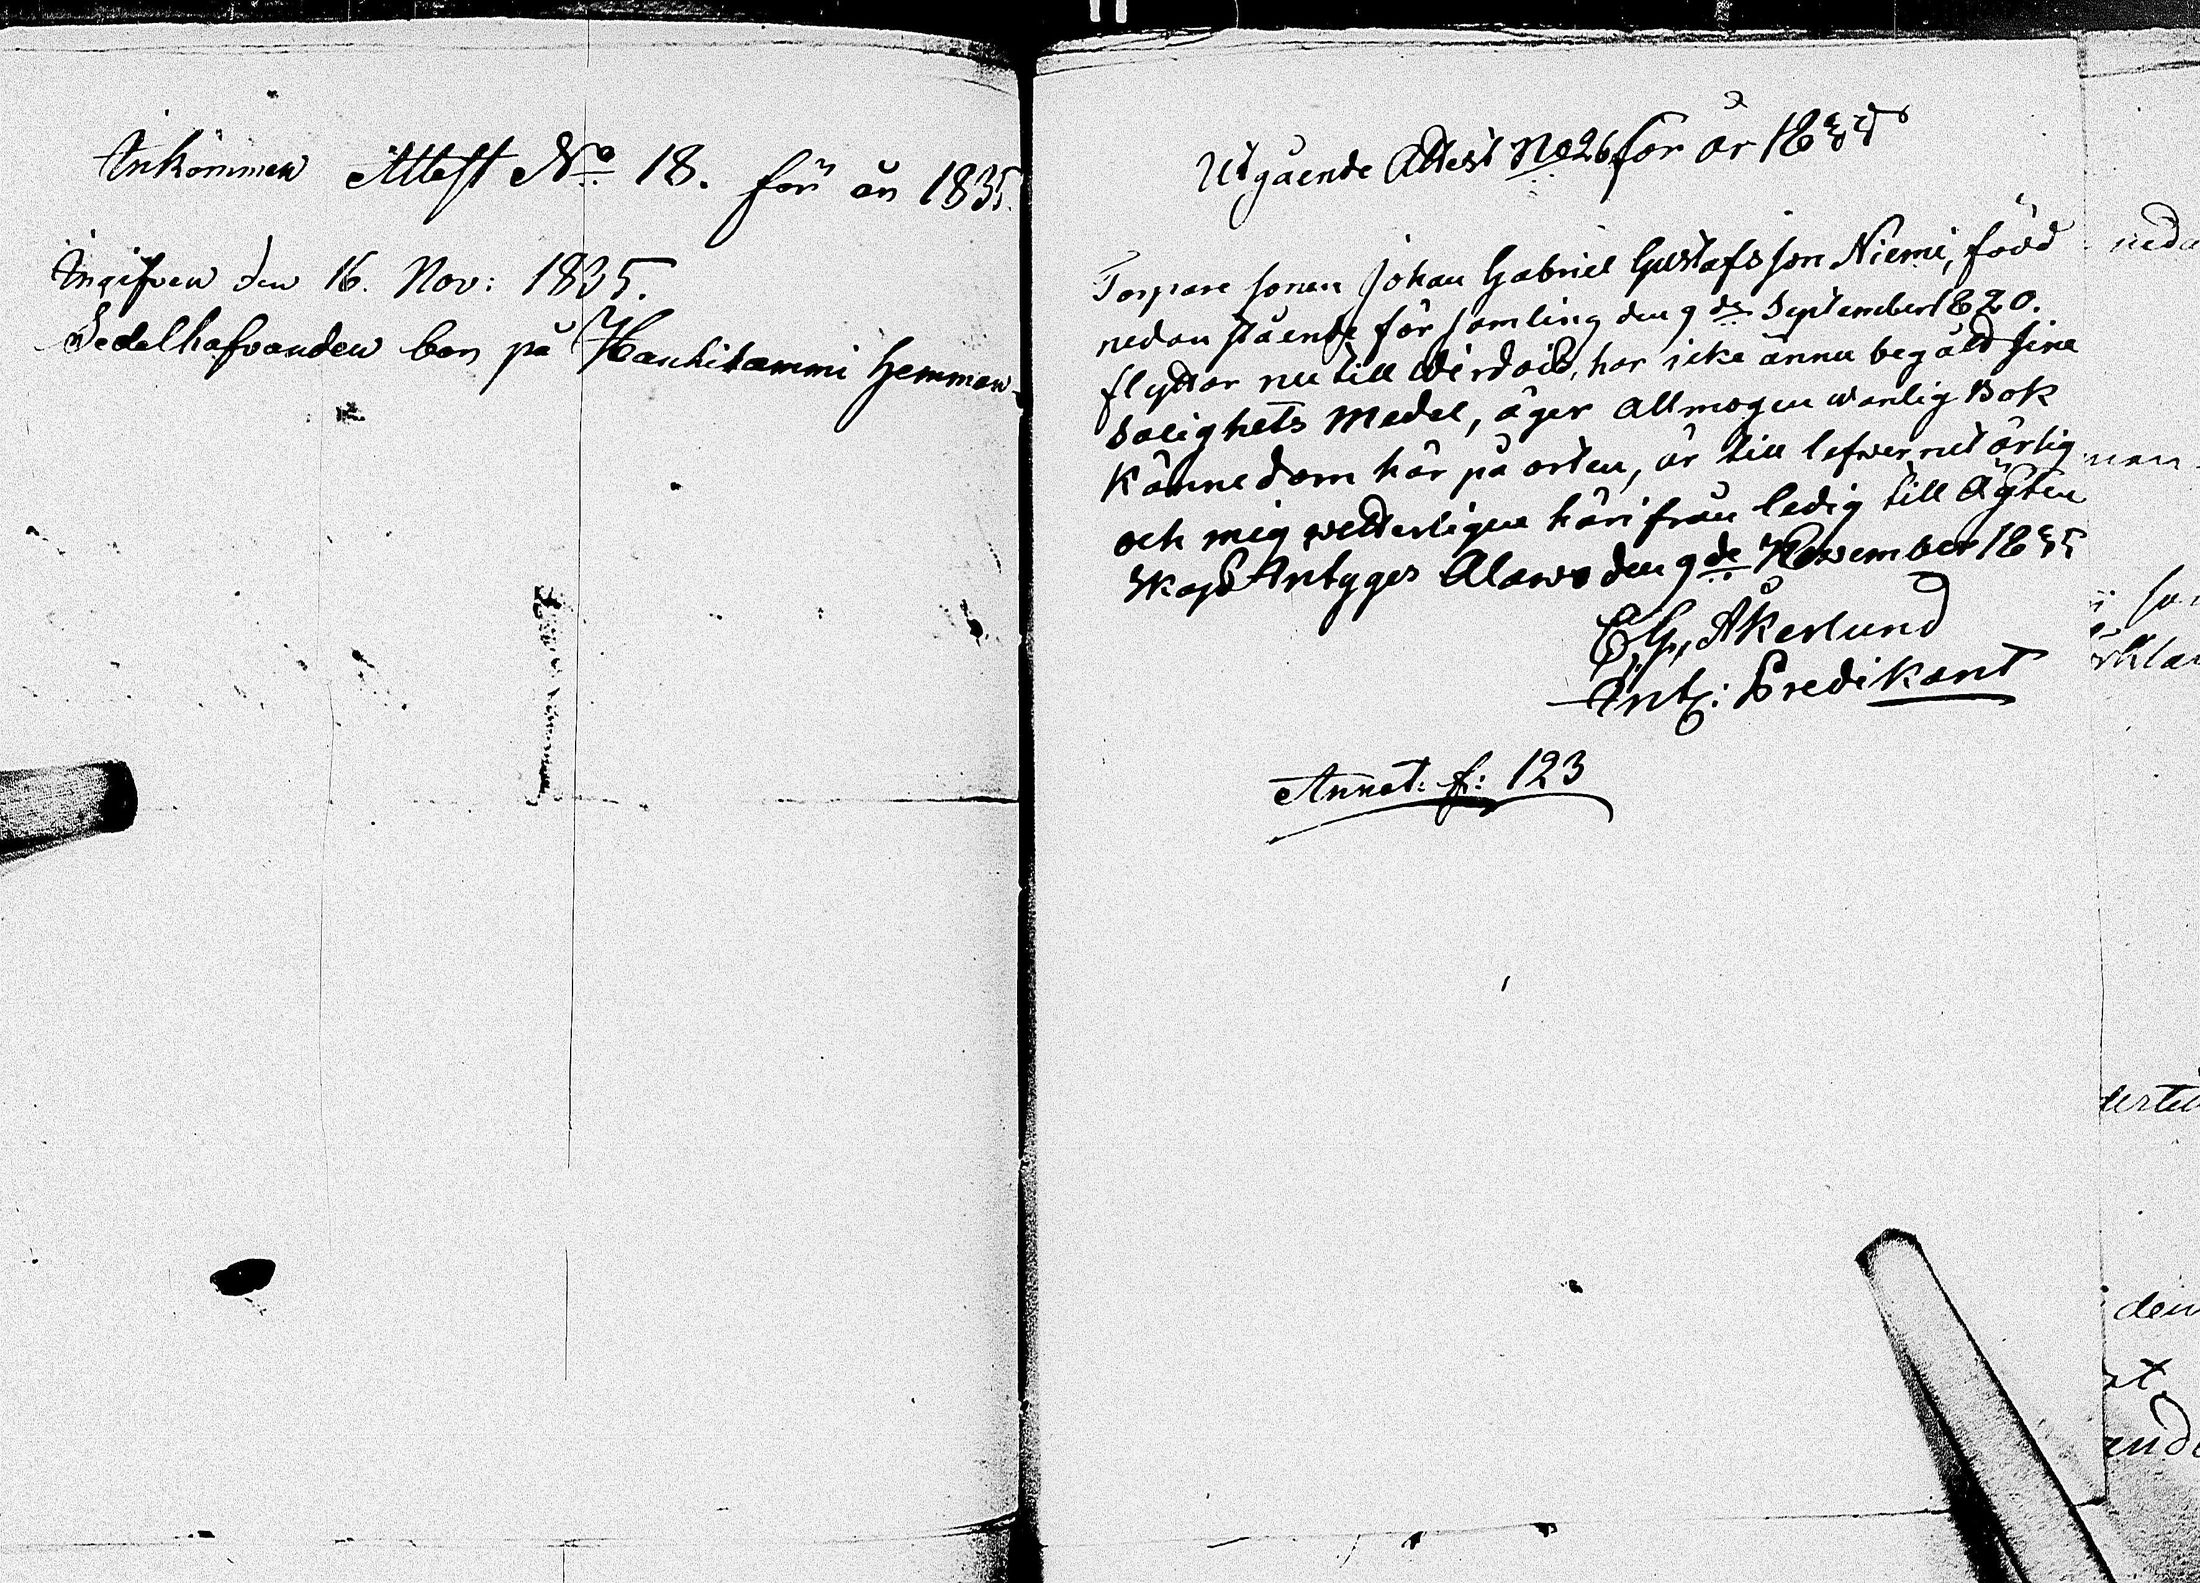 Inkommen Attest No 18. för år 1835.
Ingifven den 16. Nov: 1835.
Sedelhafvanden bor på Hankitammi Hemman
Utgående Attest No 26 för år 1835
Torpare sonen Johan Gabriel Gustafsson Niemi, född
nedan stående församling den 9de September 1820.
flyttar nu till Wirdois, har icke ännu begådt sine
Salighets Medel, äger allmogen wanlig Bok
Kännedom här på orten, är till lefwernet ärlig
och mig wetterligen härifrån ledig till Ägten
skap Intyges Alawo den 9de November 1835
E, G, Åkerlund
Antc: Predikant
Annot: f: 123
neda
nan
den